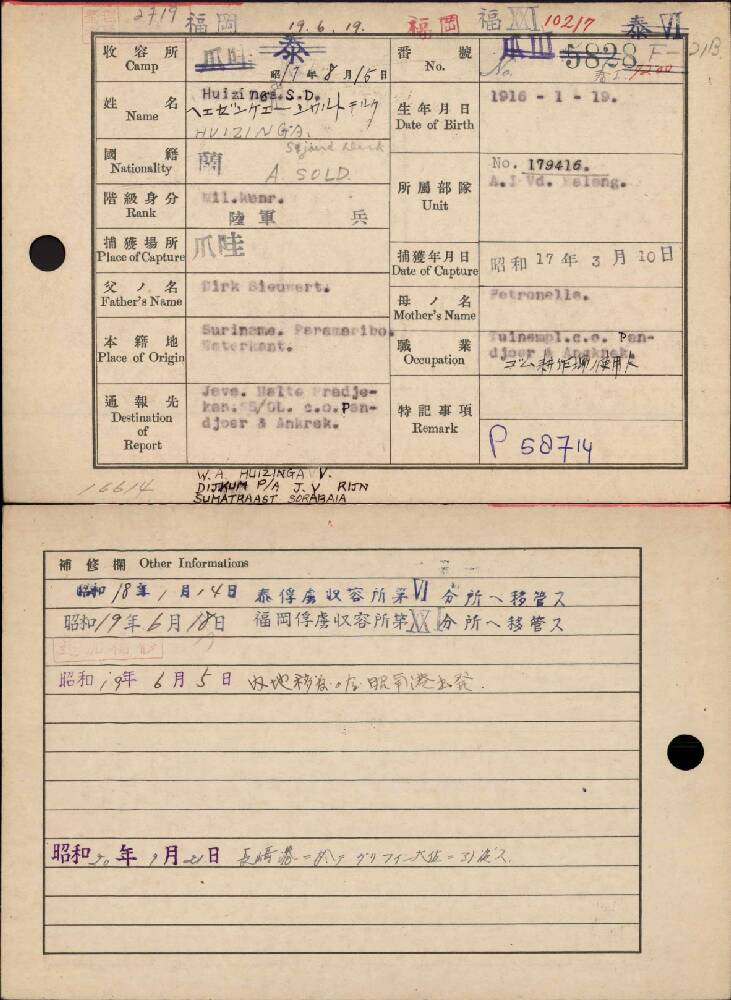 2719 福岡 19.6.19. 福岡 福XXI 10217 泰VI
收容所 Camp 爪哇 泰
昭17年8月15日
番號 No. 爪III 5828 F-21B
No.
姓名 Name Huizinga.S.D.
HUIZINGA.
Sjoerd Dirk
生年月日 Date of Birth 1916 - 1 - 19.
國籍 Nationality 蘭
A SOLD.
階級身分 Rank Mil.kanr.
陸軍 兵
所屬部隊 Unit No. 179416.
A.I Vd. Malang.
捕獲場所 Place of Capture 爪哇
捕獲年月日 Date of Capture 昭和17年3月10日
父ノ名 Father's Name Dirk Sieuwert.
母ノ名 Mother's Name Petronella.
本籍地 Place of Origin Suriname. Paramaribo.
Waterkant.
職業 Occupation Tuinempl.c.o. Pan-
djoer & Angkrek.
ゴム耕作地 使用人
通報先 Destination of Report Java. Halte Pradje-
kan. c.o. Pan-
djoer & Ankrek.
特記事項 Remark P 68714
16614
W.A. HUIZINGA V.
DIJKUM P/A J. V RIJN
SUMATRAAST SORABAIA
補修欄 Other Informations
昭和18年1月14日 泰俘虜収容所第VI分所ヘ移管ス
昭和19年6月18日 福岡俘虜収容所第XXI分所ヘ移管ス
昭和19年6月5日 内地移送ノ為昭南港出発.
昭和20年9月21日 長崎港ニ於テ グリフィン大佐ニ引渡ス